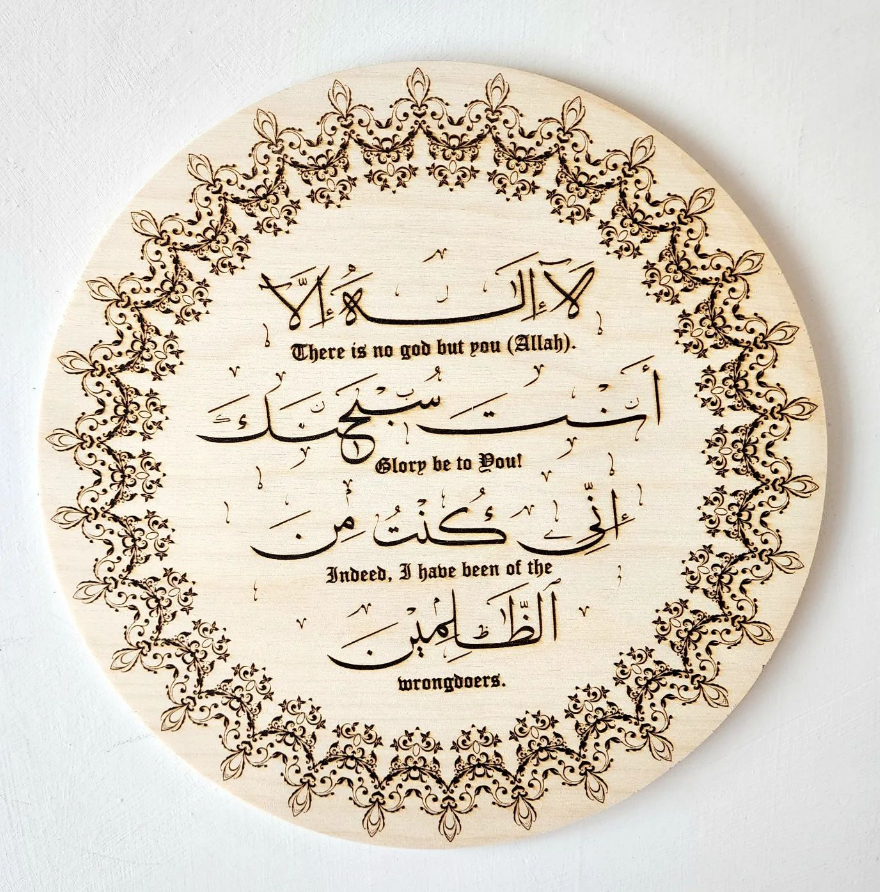 لَآ إِلَٰهَ إِلَّآ
There is no god but you (Allah).
أَنْتَ سُبْحَٰنَكَ
Glory be to You!
إِنِّي كُنْتُ مِنَ
Indeed, I have been of the
ٱلظَّٰلِمِينَ
wrongdoers.